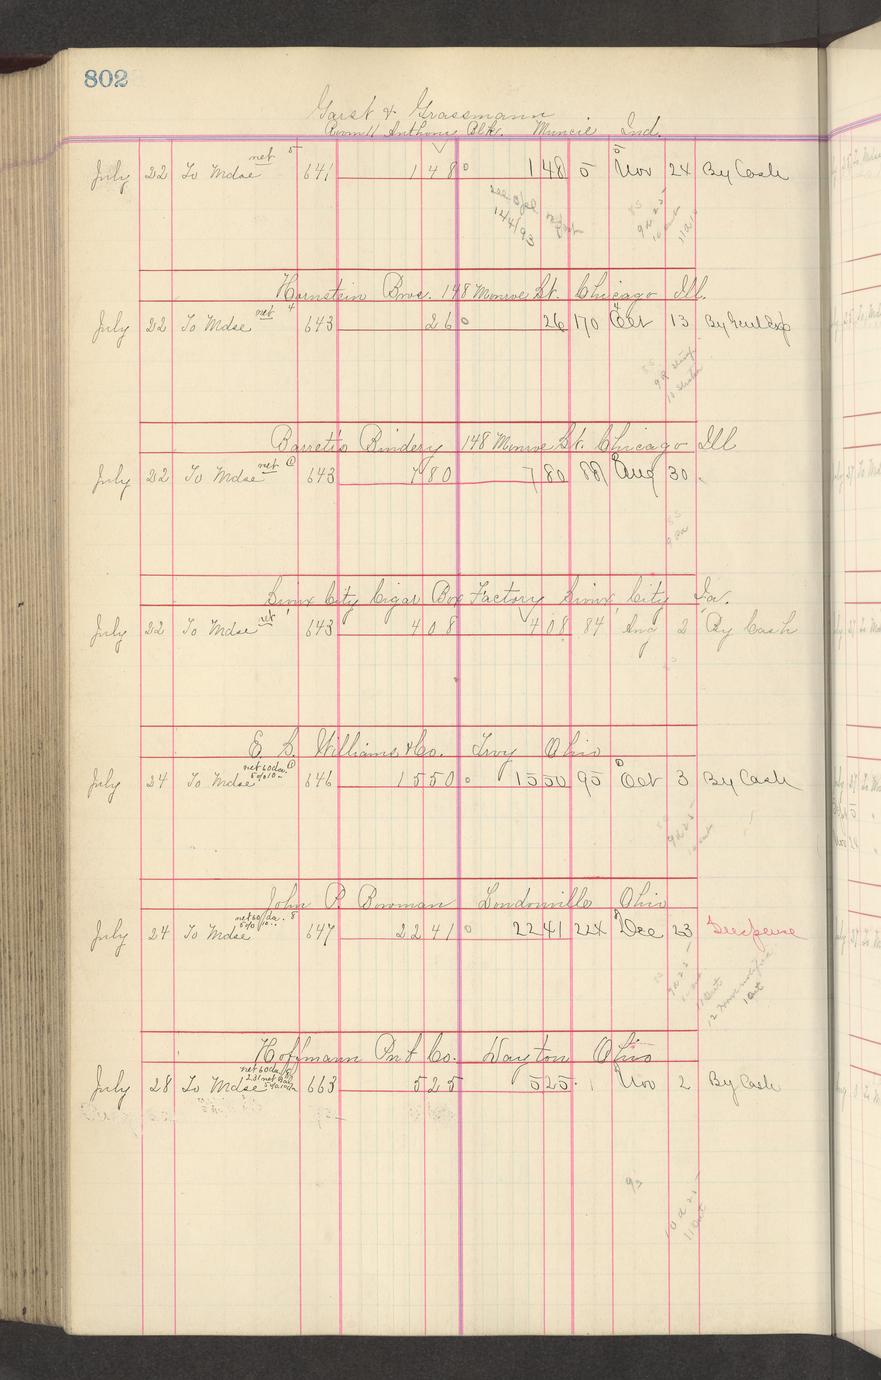 802
Garst & Grassmann
Room 11 Anthony Blk. Muncie Ind.
July 22 To Mdse net 5 641 1 48 0 1 48 5 Nov 24 By Cash
12/4/93
Hornstein Bros. 148 Monroe St. Chicago Ill.
July 22 To Mdse net 4 643 26 0 26 170 Oct 13
Barrett's Bindery 148 Monroe St. Chicago Ill
July 22 To Mdse net 643 7 80 7 80 88 Aug 30
Sioux City Cigar Box Factory Sioux City Ia.
July 22 To Mdse net 643 4 08 4 08 84 Aug 2 By Cash
E. S. Williams & Co. Troy Ohio
July 24 To Mdse net 60 da. 646 15 50 0 15 50 95 Oct 3 By Cash
John P. Bowman Loudonville Ohio
July 24 To Mdse net 60 da. 8 647 22 41 0 22 41 224 Dec 23 Suspense
Hoffmann Pnt Co. Dayton Ohio
July 28 To Mdse net 60 da. 663 5 25 5 25 1 Nov 2 By Cash